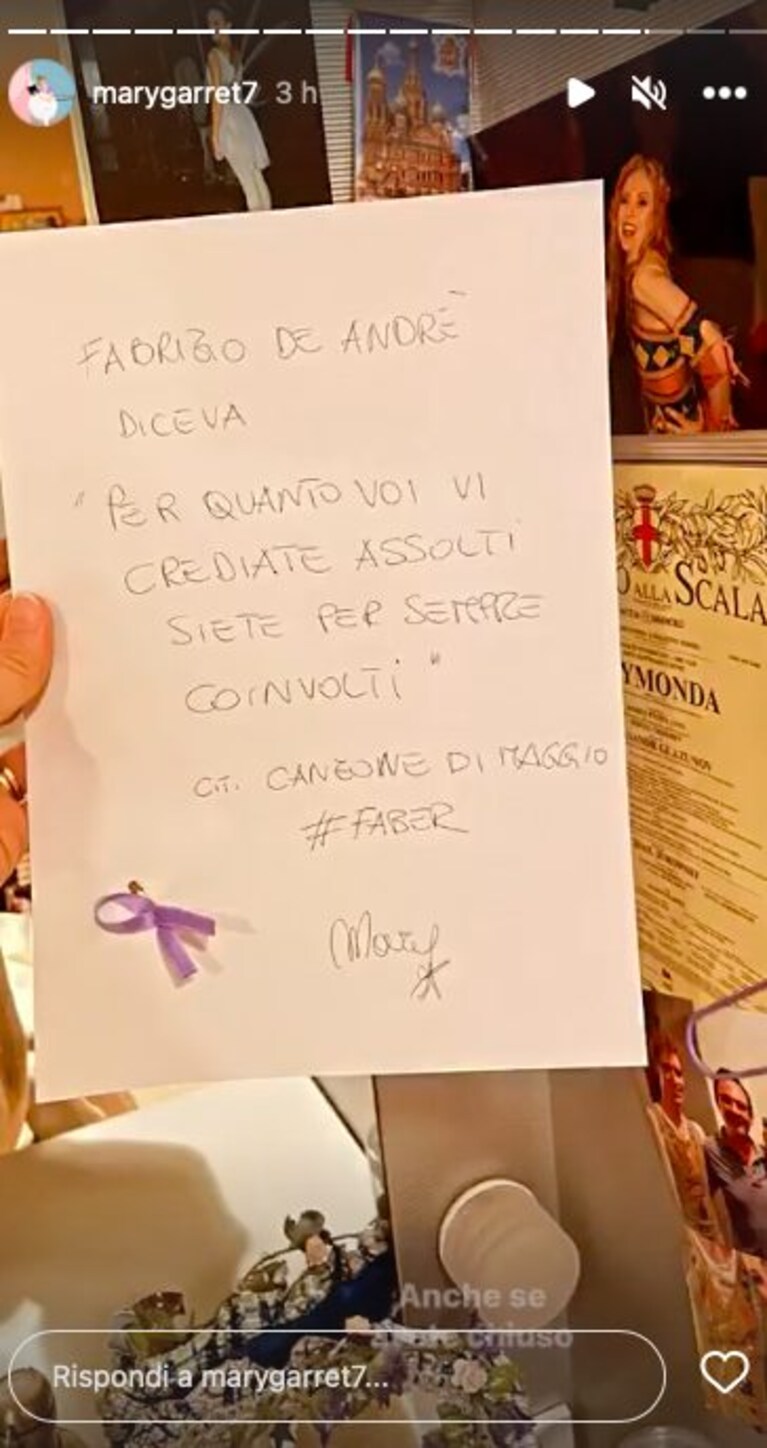 marygarret7 3 h
FABRIZIO DE ANDRÈ
DICEVA
"PER QUANTO VOI VI
CREDIATE ASSOLTI
SIETE PER SEMPRE
COINVOLTI"
CIT. CANZONE DI MAGGIO
#FABER
Mary
ALLA SCALA
YMONDA
Anche se
chiuso
Rispondi a marygarret7...